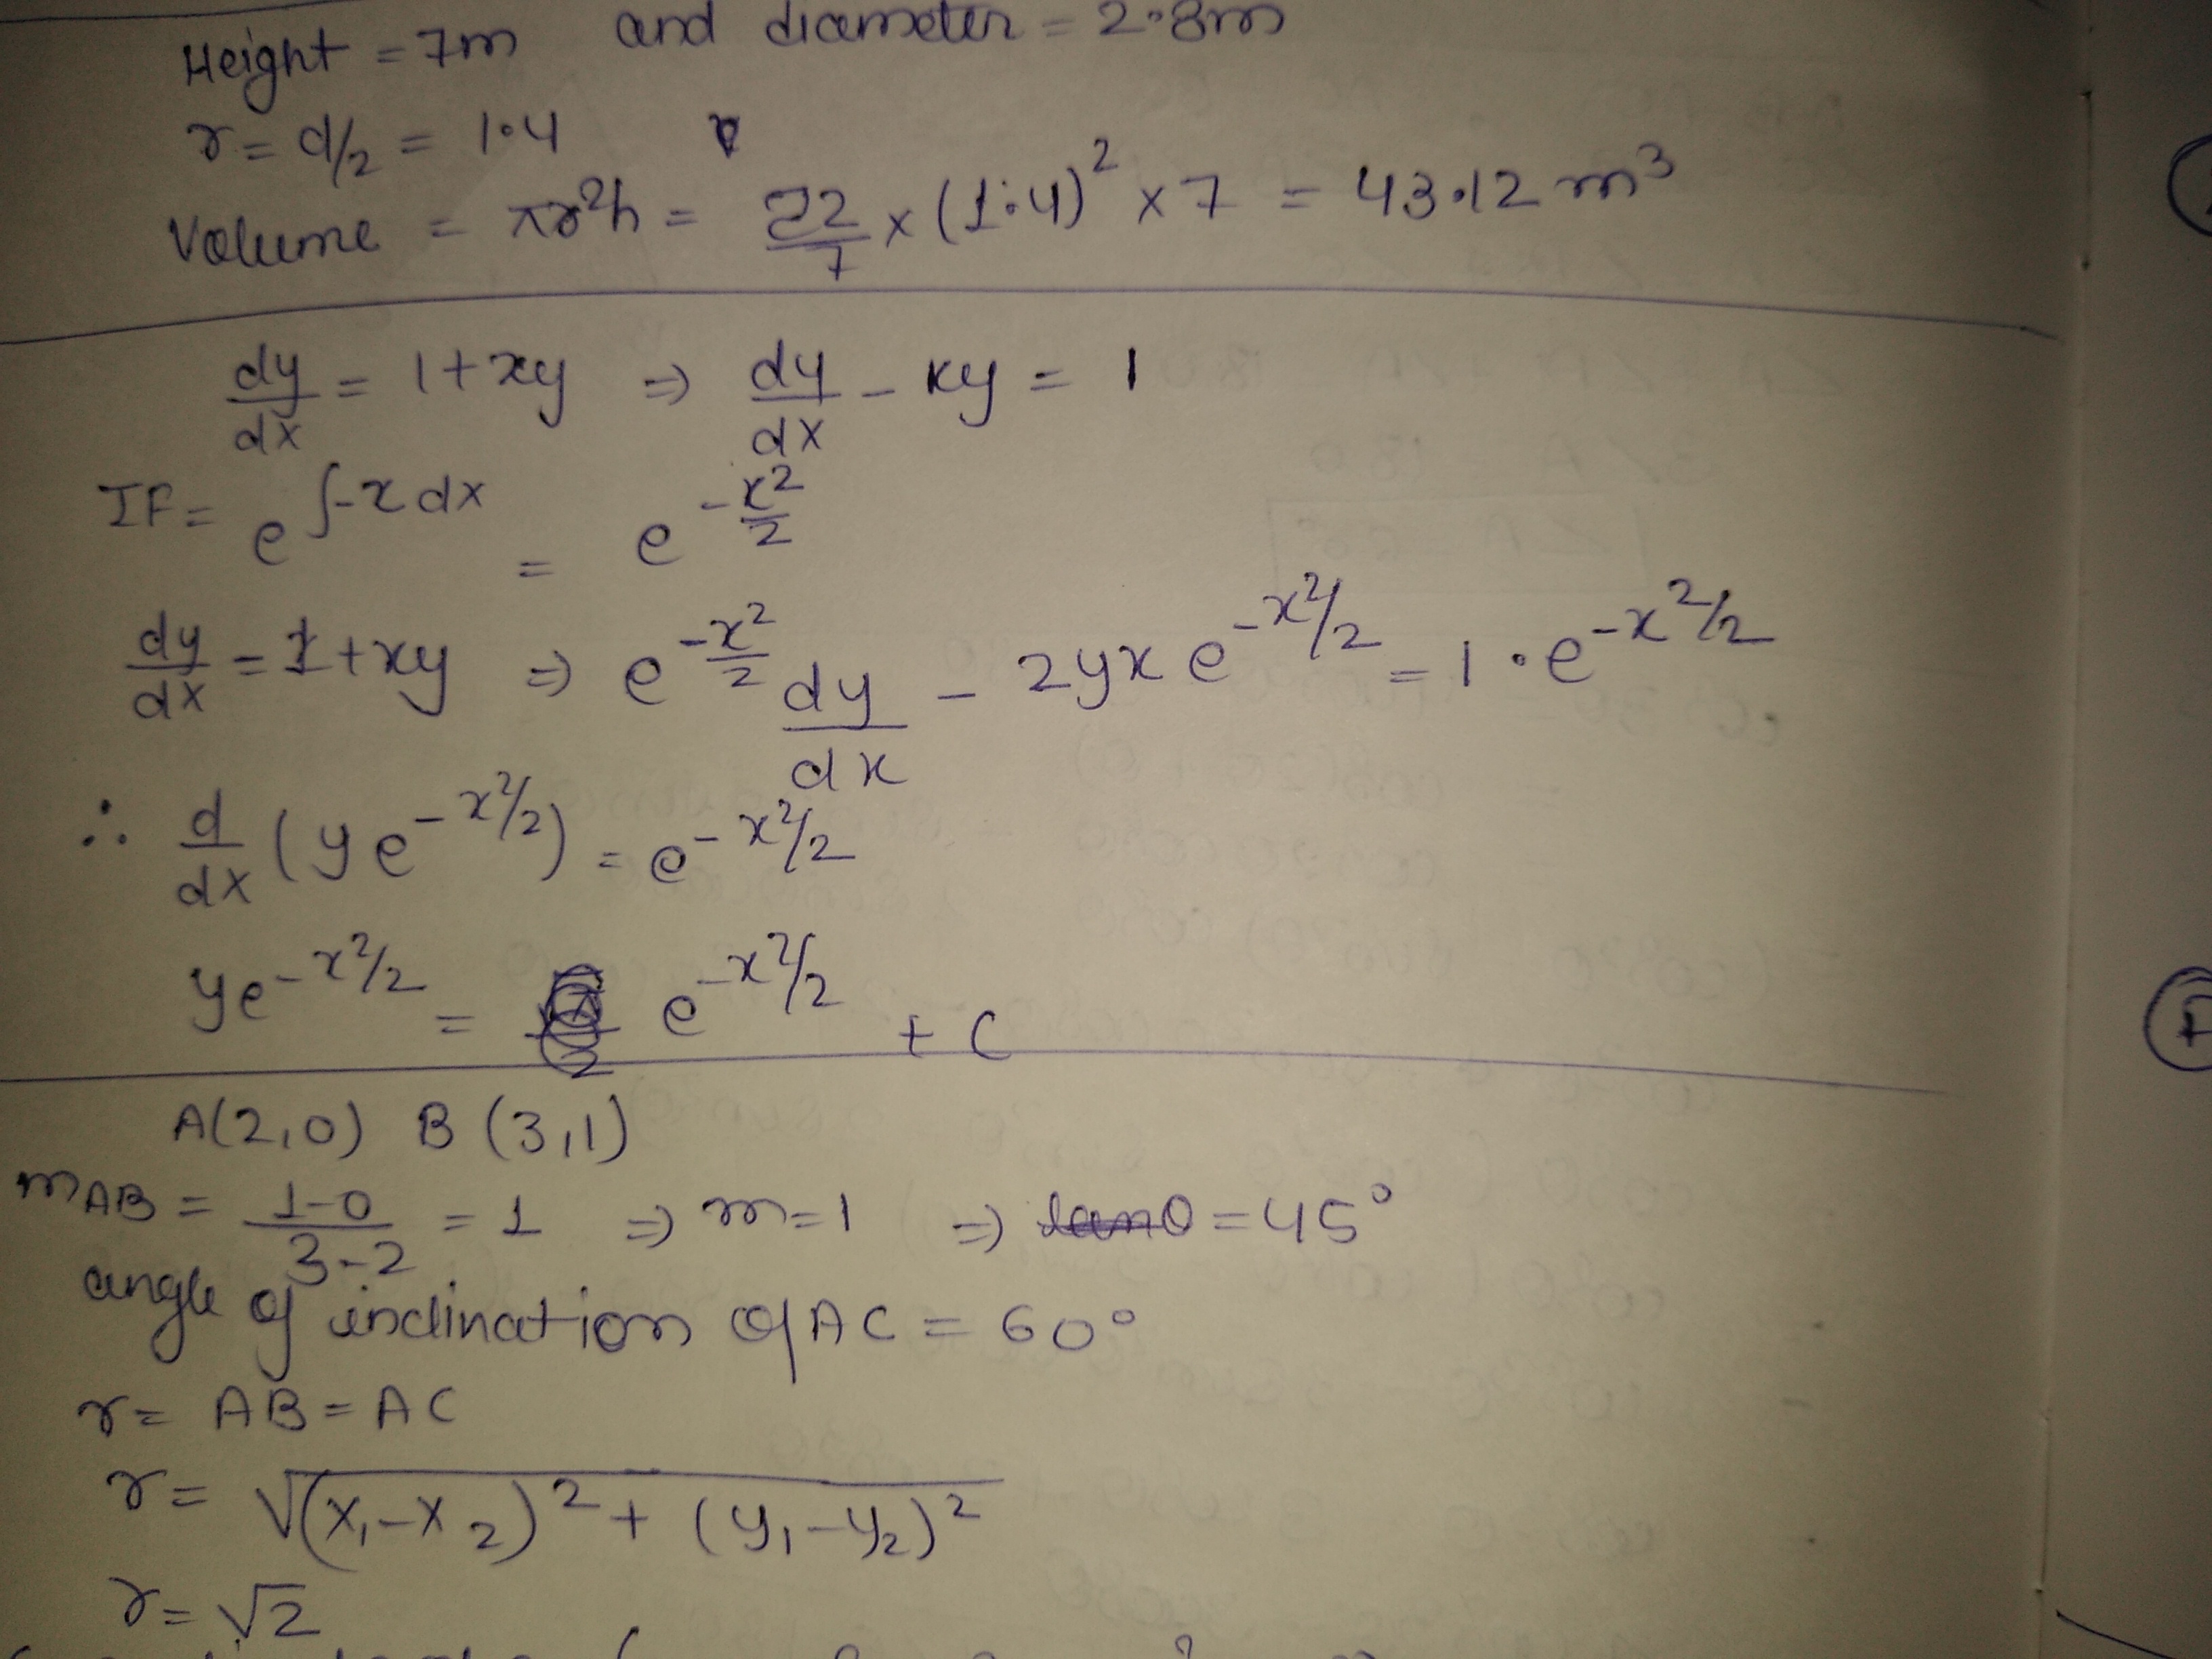 Height = 7m and diameter = 2.8m
r = d/2 = 1.4
Volume = πr²h = 22/7 × (1.4)² × 7 = 43.12 m³
dy/dx = 1 + xy ⇒ dy/dx - xy = 1
IF = e^∫-x dx = e^-x²/2
dy/dx = 1 + xy ⇒ e^-x²/2 dy/dx - 2yx e^-x²/2 = 1 · e^-x²/2
∴ d/dx (y e^-x²/2) = e^-x²/2
y e^-x²/2 = e^-x²/2 + C
A(2,0) B (3,1)
m AB = 1-0/3-2 = 1 ⇒ m = 1 ⇒ tanθ = 45°
angle of inclination of AC = 60°
r = AB = AC
r = √(x₁-x₂)² + (y₁-y₂)²
r = √2